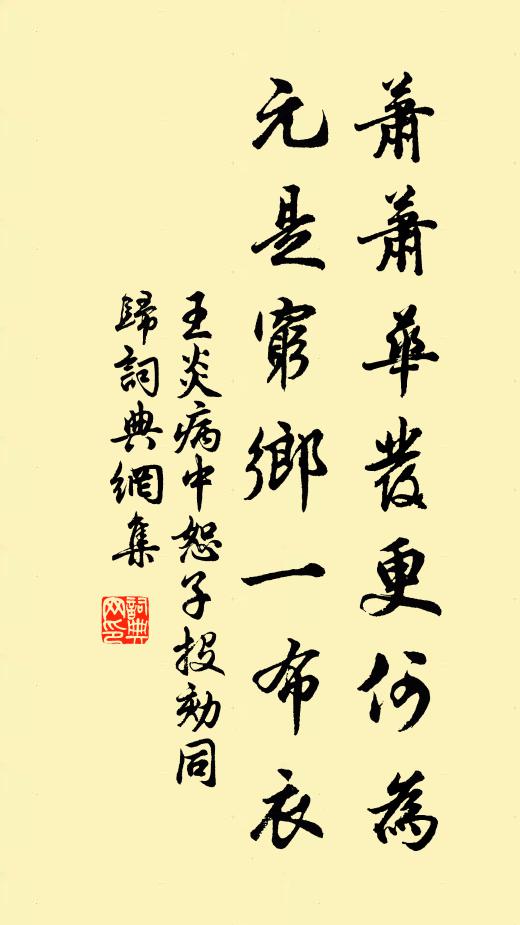 蕭蕭華發更何為
元是窮鄉一布衣
王炎病中恕子投劾同
歸詞典網集
詞典
网印